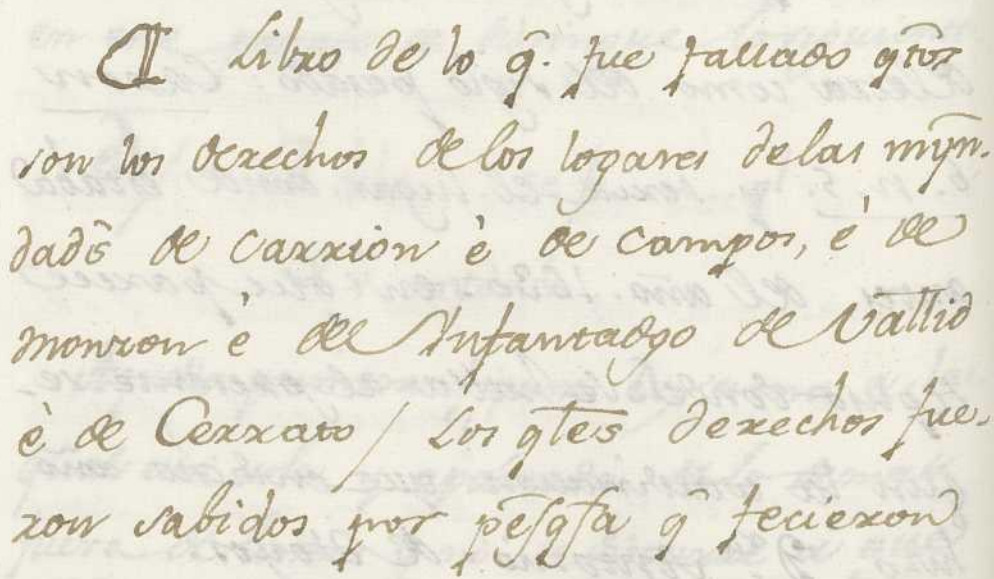 ¶ Libro de lo q̃. fue fallado qtõs
son los derechos de los logares delas mỹn-
dadẽs de Carrion è de Campos, è de
monzon è de Infantadgo de Vallid
è de Cerrato / Los qtẽs derechos fue-
ron sabidos por pẽsqsa q̃ fecieron